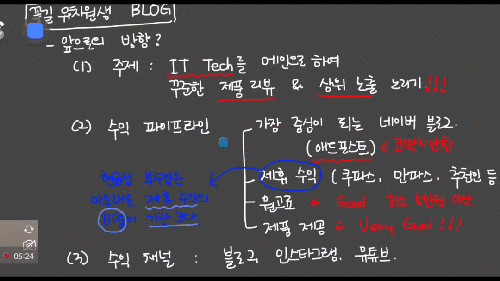 꼭길 우차원생 BLOG
- 앞으로의 방향?
(1) 주제 : IT Tech를 메인으로 하여
꾸준한 제품 리뷰 & 상위 노출 노리기!!!
(2) 수익 파이프라인
가장 중심이 되는 네이버 블로그.
(애드포스트) ← 코딱지만함
제휴 수익 (쿠파스, 알파스, 추천인 등
원고료 ← Good 최소 5만원 이상
제품 제공 ← Very Good!!!
현금성 부수입은
아무래도 제휴 수익의
비중이 가장 크다
(3) 수익 채널 : 블로그, 인스타그램, 유튜브.
05:24